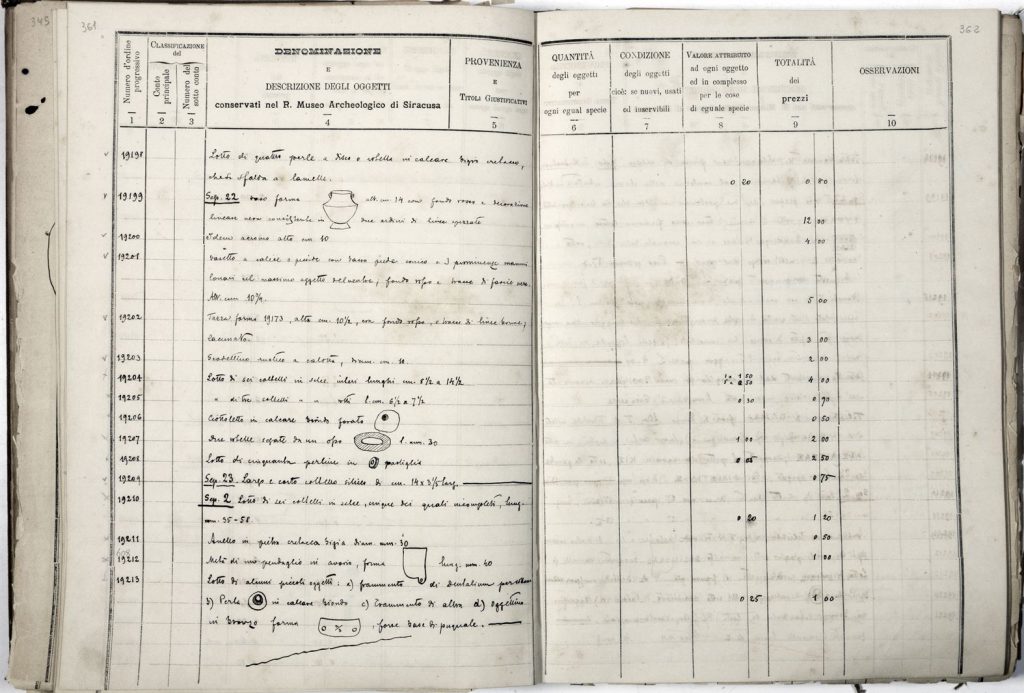 345
361
362
Numero d'ordine progressivo
CLASSIFICAZIONE del
Conto principale
Numero del sotto conto
DENOMINAZIONE
E
DESCRIZIONE DEGLI OGGETTI
conservati nel R. Museo Archeologico di Siracusa
PROVENIENZA
E
TITOLI GIUSTIFICATIVI
QUANTITÀ
degli oggetti
per
ogni egual specie
CONDIZIONE
degli oggetti
cioè: se nuovi, usati
od inservibili
VALORE ATTRIBUITO
ad ogni oggetto
ed in complesso
per le cose
di eguale specie
TOTALITÀ
dei
prezzi
OSSERVAZIONI
1 2 3 4 5 6 7 8 9 10
19198 Lotto di quattro perle a disco o rotelle in calcare bigio cretaceo,
che si sfalda a lamelle. 0 20 0 80
19199 Sep. 22 vaso forma alt. cm. 14 con fondo rosso e decorazione
lineare nera consistente in due ordini di linee spezzate 12 00
19200 Idem acromo alto cm 10 4 00
19201 Vasetto a calice o piside con basso piede conico e 3 prominenze mammil
lonari nel massimo oggetto del ventre; fondo roseo e tracce di fascie nere.
Alt. cm. 10 1/4. 5 00
19202 Tazza forma 19173, alta cm. 10 1/2, con fondo rosso, e tracce di linee brune;
lacunata. 3 00
19203 Scodellino rustico a calotta, diam. cm. 10 2 00
19204 Lotto di sei coltelli in selce interi lunghi cm. 8 1/2 a 14 1/2 1 50 4 00
19205 " di tre coltelli " " rotti l. cm. 6 1/2 a 7 1/2 0 30 0 90
19206 Ciottoletto in calcare biondo forato 0 50
19207 Due rotelle segate da un osso l. mm. 30 1 00 2 00
19208 Lotto di cinquanta perline in pastiglia 0 05 2 50
19209 Sep. 23. Largo e corto coltello siliceo di cm. 14 x 3 1/2 larg. 0 75
19210 Sep. 2 Lotto di sei coltelli in selce, cinque dei quali incompleti, lung.
mm. 35-58 0 20 1 20
19211 Anello in pietra cretacea bigia diam. mm. 30 0 50
19212 Metà di un pendaglio in avorio, forma lung. mm. 40 1 00
19213 Lotto di alcuni piccoli oggetti: a) frammento di dentalium per
b) Perla in calcare biondo c) Frammento di altra d) oggettino
in bronzo forma , forse base di pugnale. 0 25 1 00